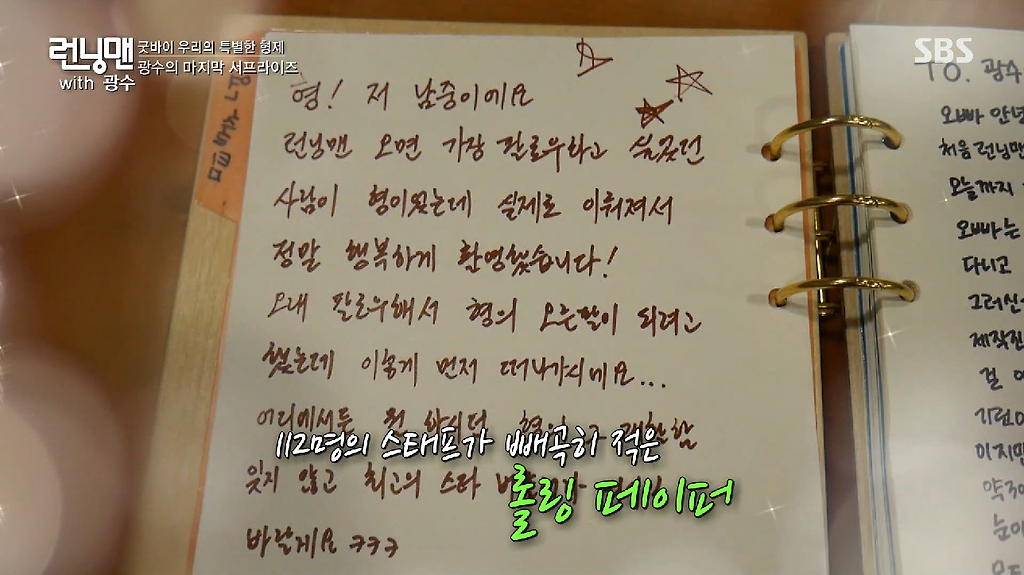 런닝맨
with 광수
굿바이 우리의 특별한 형제
광수의 마지막 서프라이즈
SBS
형! 저 남중이에요
런닝맨 오면 가장 팔로우하고 싶었던
사람이 형이었는데 실제로 이뤄져서
정말 행복하게 촬영했습니다!
오래 팔로우해서 형의 오른팔이 되려고
했는데 이렇게 먼저 떠나가시네요...
어디에서든
잊지 않고 최고의 스타
바랄게요 ㅋㅋㅋ
112명의 스태프가 빼곡히 적은
롤링 페이퍼
TO. 광수
오빠 안녕
처음 런닝맨
오늘까지
오빠는
다니고
그러신
제작진
걸
기린이
이지만
눈이
모든